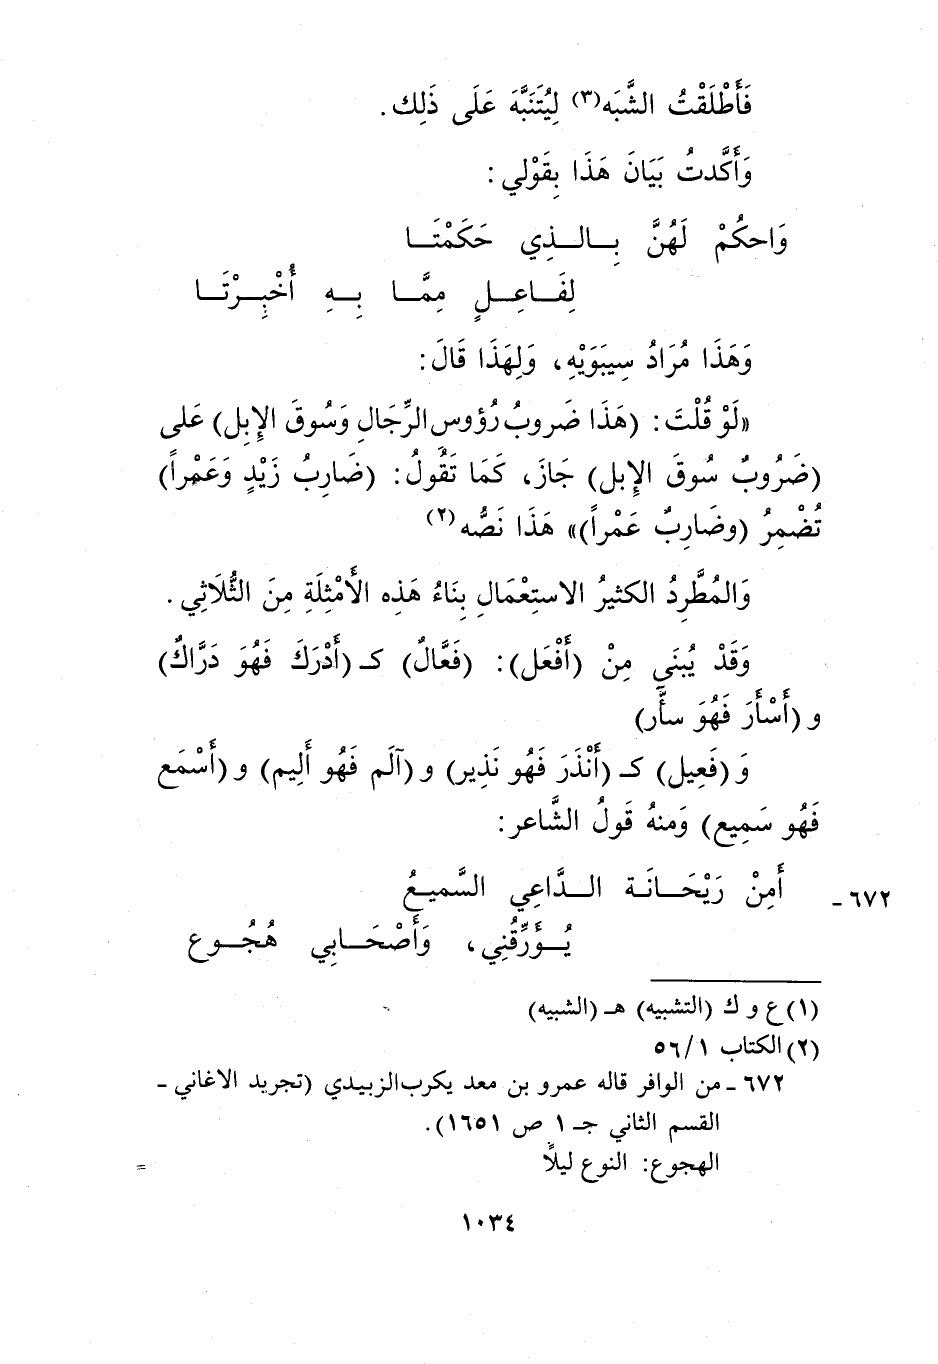 فَأَطْلَقْتُ الشَّبَه(٣) لِيُتَنَبَّهَ عَلَى ذَلِك.
وَأَكَّدتُ بَيَانَ هَذَا بِقَوْلي:
وَاحكُمْ لَهُنَّ بِـالـــذِي حَكَمْتَـــا
لِفَـــاعِـــلٍ مِمَّـــا بِـــهِ أُخْبِـــرْتَـــا
وَهَذَا مُرَادُ سِيبَوَيْهِ، وَلِهَذَا قَالَ:
«لَوْ قُلْتَ: (هَذَا ضَروبُ رُؤوسِ الرِّجَالِ وَسُوقَ الإِبِل) عَلى
(ضَرُوبٌ سُوقَ الإِبل) جَازَ، كَمَا تَقُولُ: (ضَارِبُ زَيْدٍ وَعَمْراً)
تُضْمِرُ (وضَارِبٌ عَمْراً)» هَذَا نَصُّه(٢)
وَالمُطَّرِدُ الكثيرُ الاستِعْمَالِ بِنَاءُ هَذِه الأَمْثِلَةِ مِنَ الثُّلَاثِي.
وَقَدْ يُبنَى مِنْ (أَفْعَل): (فَعَّالٌ) كـ (أَدْرَكَ فَهُوَ دَرَّاكٌ)
و (أَسْأَرَ فَهُوَ سأَّر)
وَ (فَعِيل) كـ (أَنْذَرَ فَهُو نَذِير) و (آلَم فَهُو أَلِيم) و (أَسْمَع
فَهُو سَمِيع) وَمنهُ قَولُ الشَّاعر:
٦٧٢ـ أَمِنْ رَيْحَـــانَـة الـــدَّاعِي السَّميـعُ
يُـــؤَرِّقُنِي، وَأَصْحَـــابي هُجُـــوع
(١) ع و ك (التشبيه) هـ (الشبيه)
(٢) الكتاب ٥٦/١
٦٧٢ ـ من الوافر قاله عمرو بن معد يكرب الزبيدي (تجريد الاغاني ـ
القسم الثاني جـ ١ ص ١٦٥١).
الهجوع: النوع ليلًا =
١٠٣٤